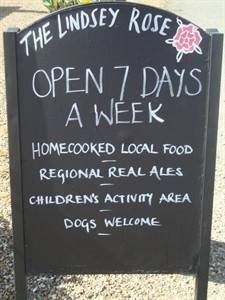 THE LINDSEY ROSE
OPEN 7 DAYS
A WEEK
HOMECOOKED LOCAL FOOD
REGIONAL REAL ALES
CHILDREN'S ACTIVITY AREA
DOGS WELCOME